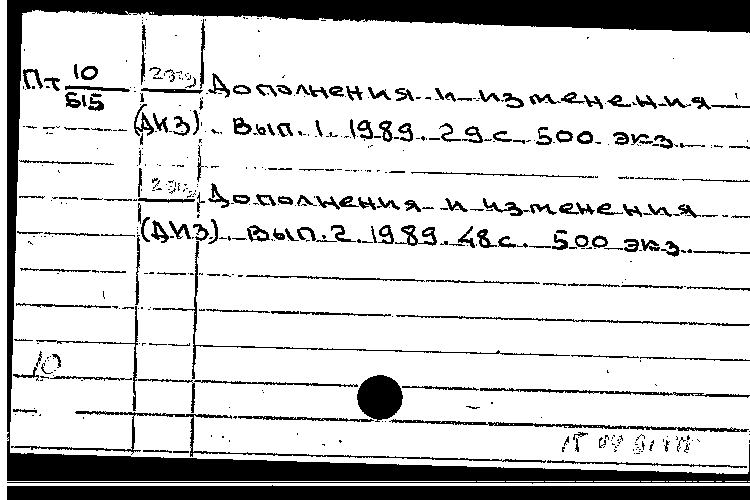 Пт 10/515 Дополнения и изменения
(ДИЗ). Вып. 1. 1989. 29 с. 500 экз.
Дополнения и изменения
(ДИЗ). Вып. 2. 1989. 48 с. 500 экз.
10